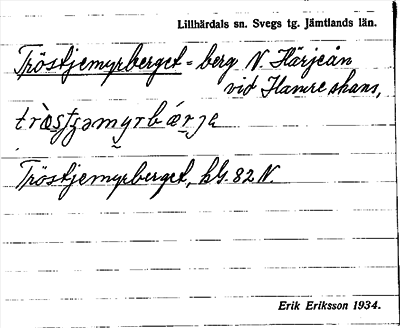 Lillhärdals sn. Svegs tg. Jämtlands län.
Tröstjemyrberget = berg N. Härjeån
vid Hamre skans,
Tröstjemyrberget, hG. 82 N.
Erik Eriksson 1934.